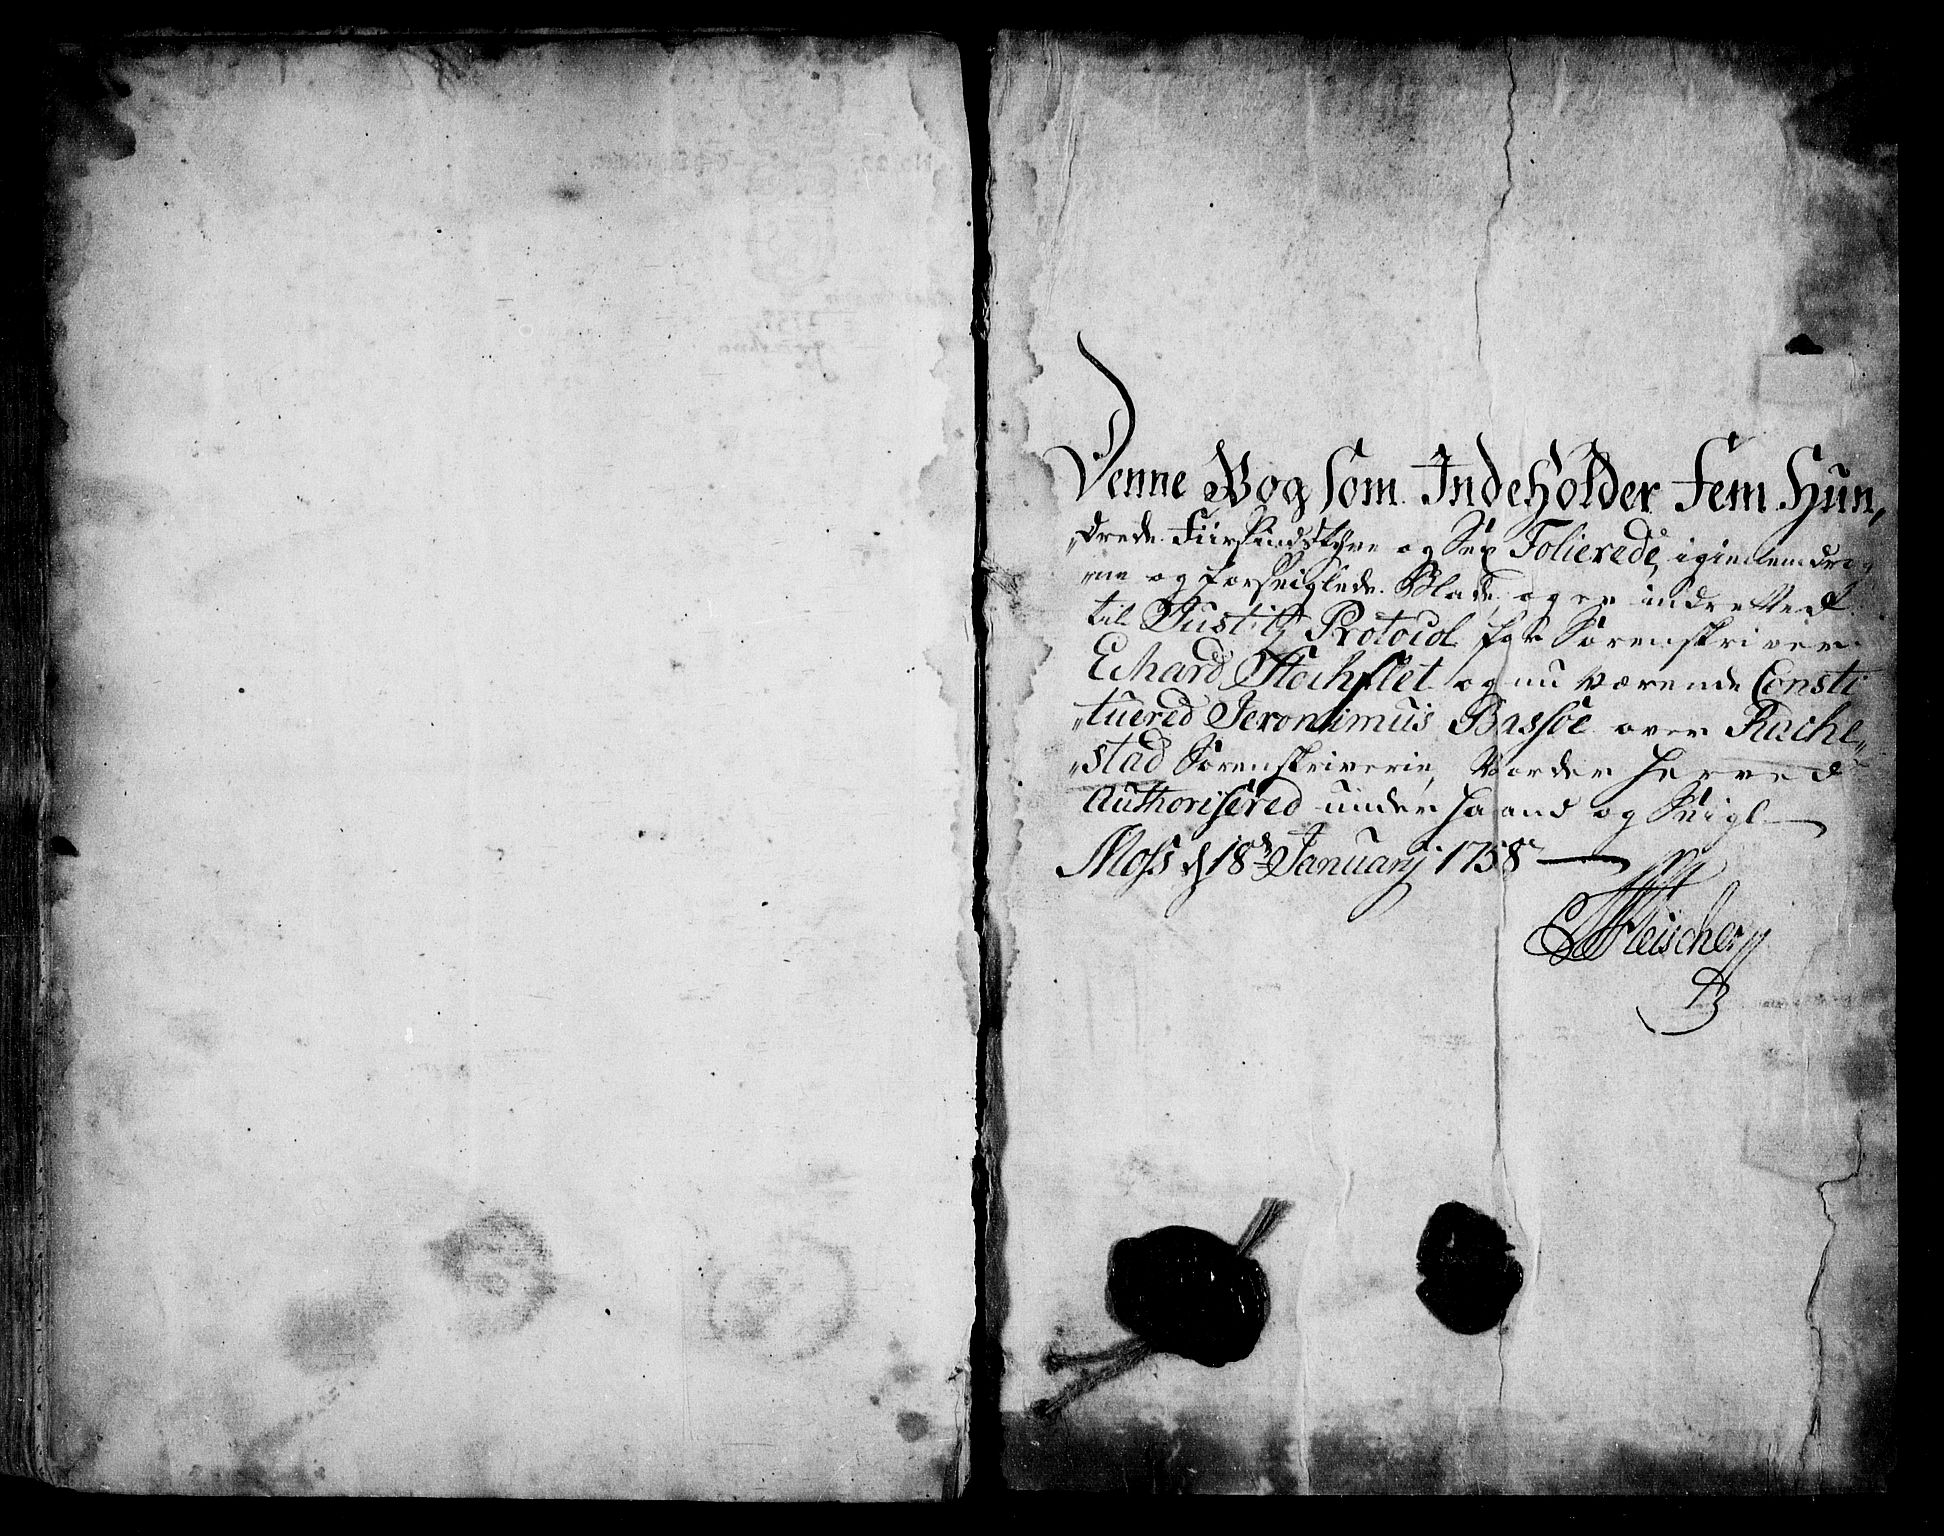 Denne Bog som Indeholder Fem Hun,
„drede Fiirsindstyve og Sex Folierede, igiennemdrag
„ne og forseiglede Blade, og er indretted
til Justitz Protocol for Sorenskriver
Echard Stochflet og nu værende Consti
„tuered Jeronimus Bassøe over Rache„
„stad Sorenskriverie, Vorder herved
Authorisered under Haand og Seigl
Moss d 18de Januarij 1758
Fleischer